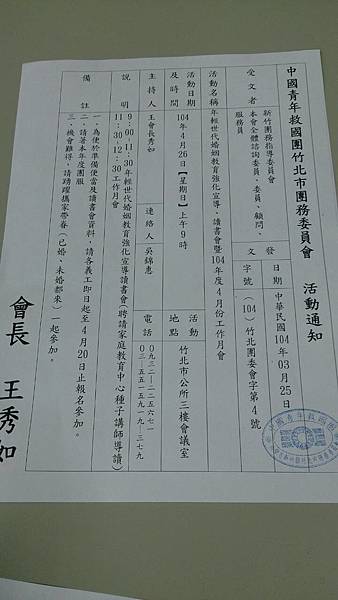 中國青年救國團竹北市團務委員會　活動通知
受文者
新竹團務指導委員會
本會全體諮詢委員、委員、顧問、服務員
發文
日期
中華民國104年03月25日
字號
(104)竹北團委會字第4號
活動名稱
年輕世代婚姻教育強化宣導、讀書會暨104年度4月份工作月會
活動日期及時間
104年4月26日【星期日】上午9時
活動地點
竹北市公所三樓會議室
主持人
王會長秀如
連絡人
吳錦惠
電話
說明
9：00-11：30年輕世代婚姻教育強化宣導讀書會(聘請家庭教育中心種子講師導讀)
11：30-12：30工作月會
備註
一、為便於準備便當及讀書會資料，請各義工即日起至4月20日止報名參加。
二、請著本年度團服
三、機會難得，請踴躍攜家帶眷(已婚、未婚都來)一起參加。
會長　王秀如